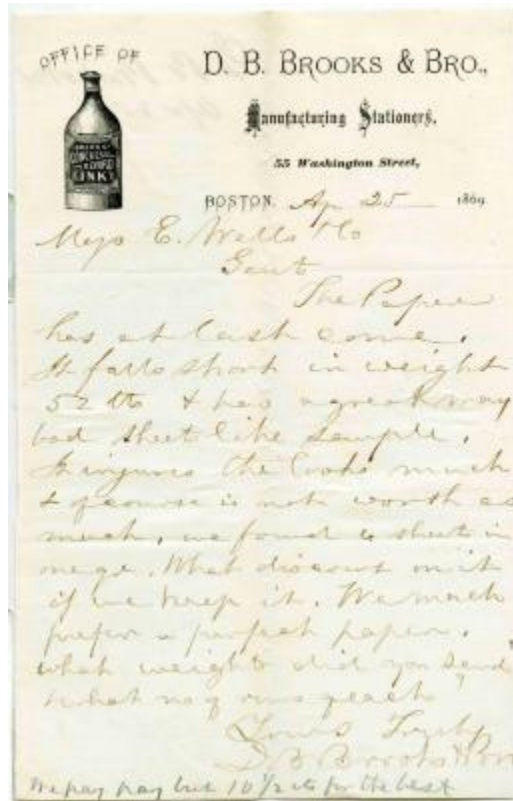 OFFICE OF
D. B. BROOKS & BRO.,
Manufacturing Stationers,
55 Washington Street,
INK
BOSTON, Ap 25 1869
E. Wells & Co
Gents
The Paper
has at last come.
It falls short in weight
52 lbs & has a great many
bad sheet like sample.
It injures the looks much
& of course is not worth as
much, we found 6 sheets in
one qr. What discount on it
if we keep it. We much
prefer a perfect paper.
what weight did you send
what no of rms each
Yours Truly
D B Brooks & Bro
We pay but 10 1/2 cts for the best